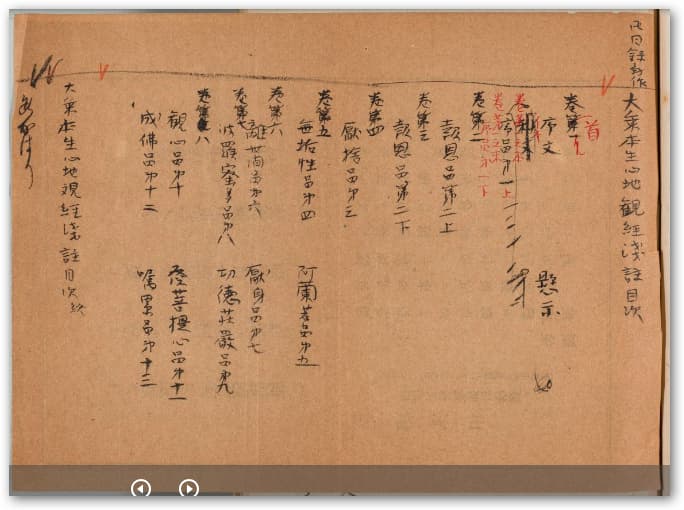 大乘本生心地觀經淺註目次
卷第一
首
序文
懸示
卷第一
序品第一上
卷第二
序品第一下
卷第二
報恩品第二上
卷第三
報恩品第二下
卷第四
厭捨品第三
卷第五
無垢性品第四 阿蘭若品第五
卷第六
離世間品第六 厭身品第七
卷第七
波羅蜜多品第八 功德莊嚴品第九
卷第八
觀心品第十 發菩提心品第十一
成佛品第十二 囑累品第十三
大乘本生心地觀經淺註目次終